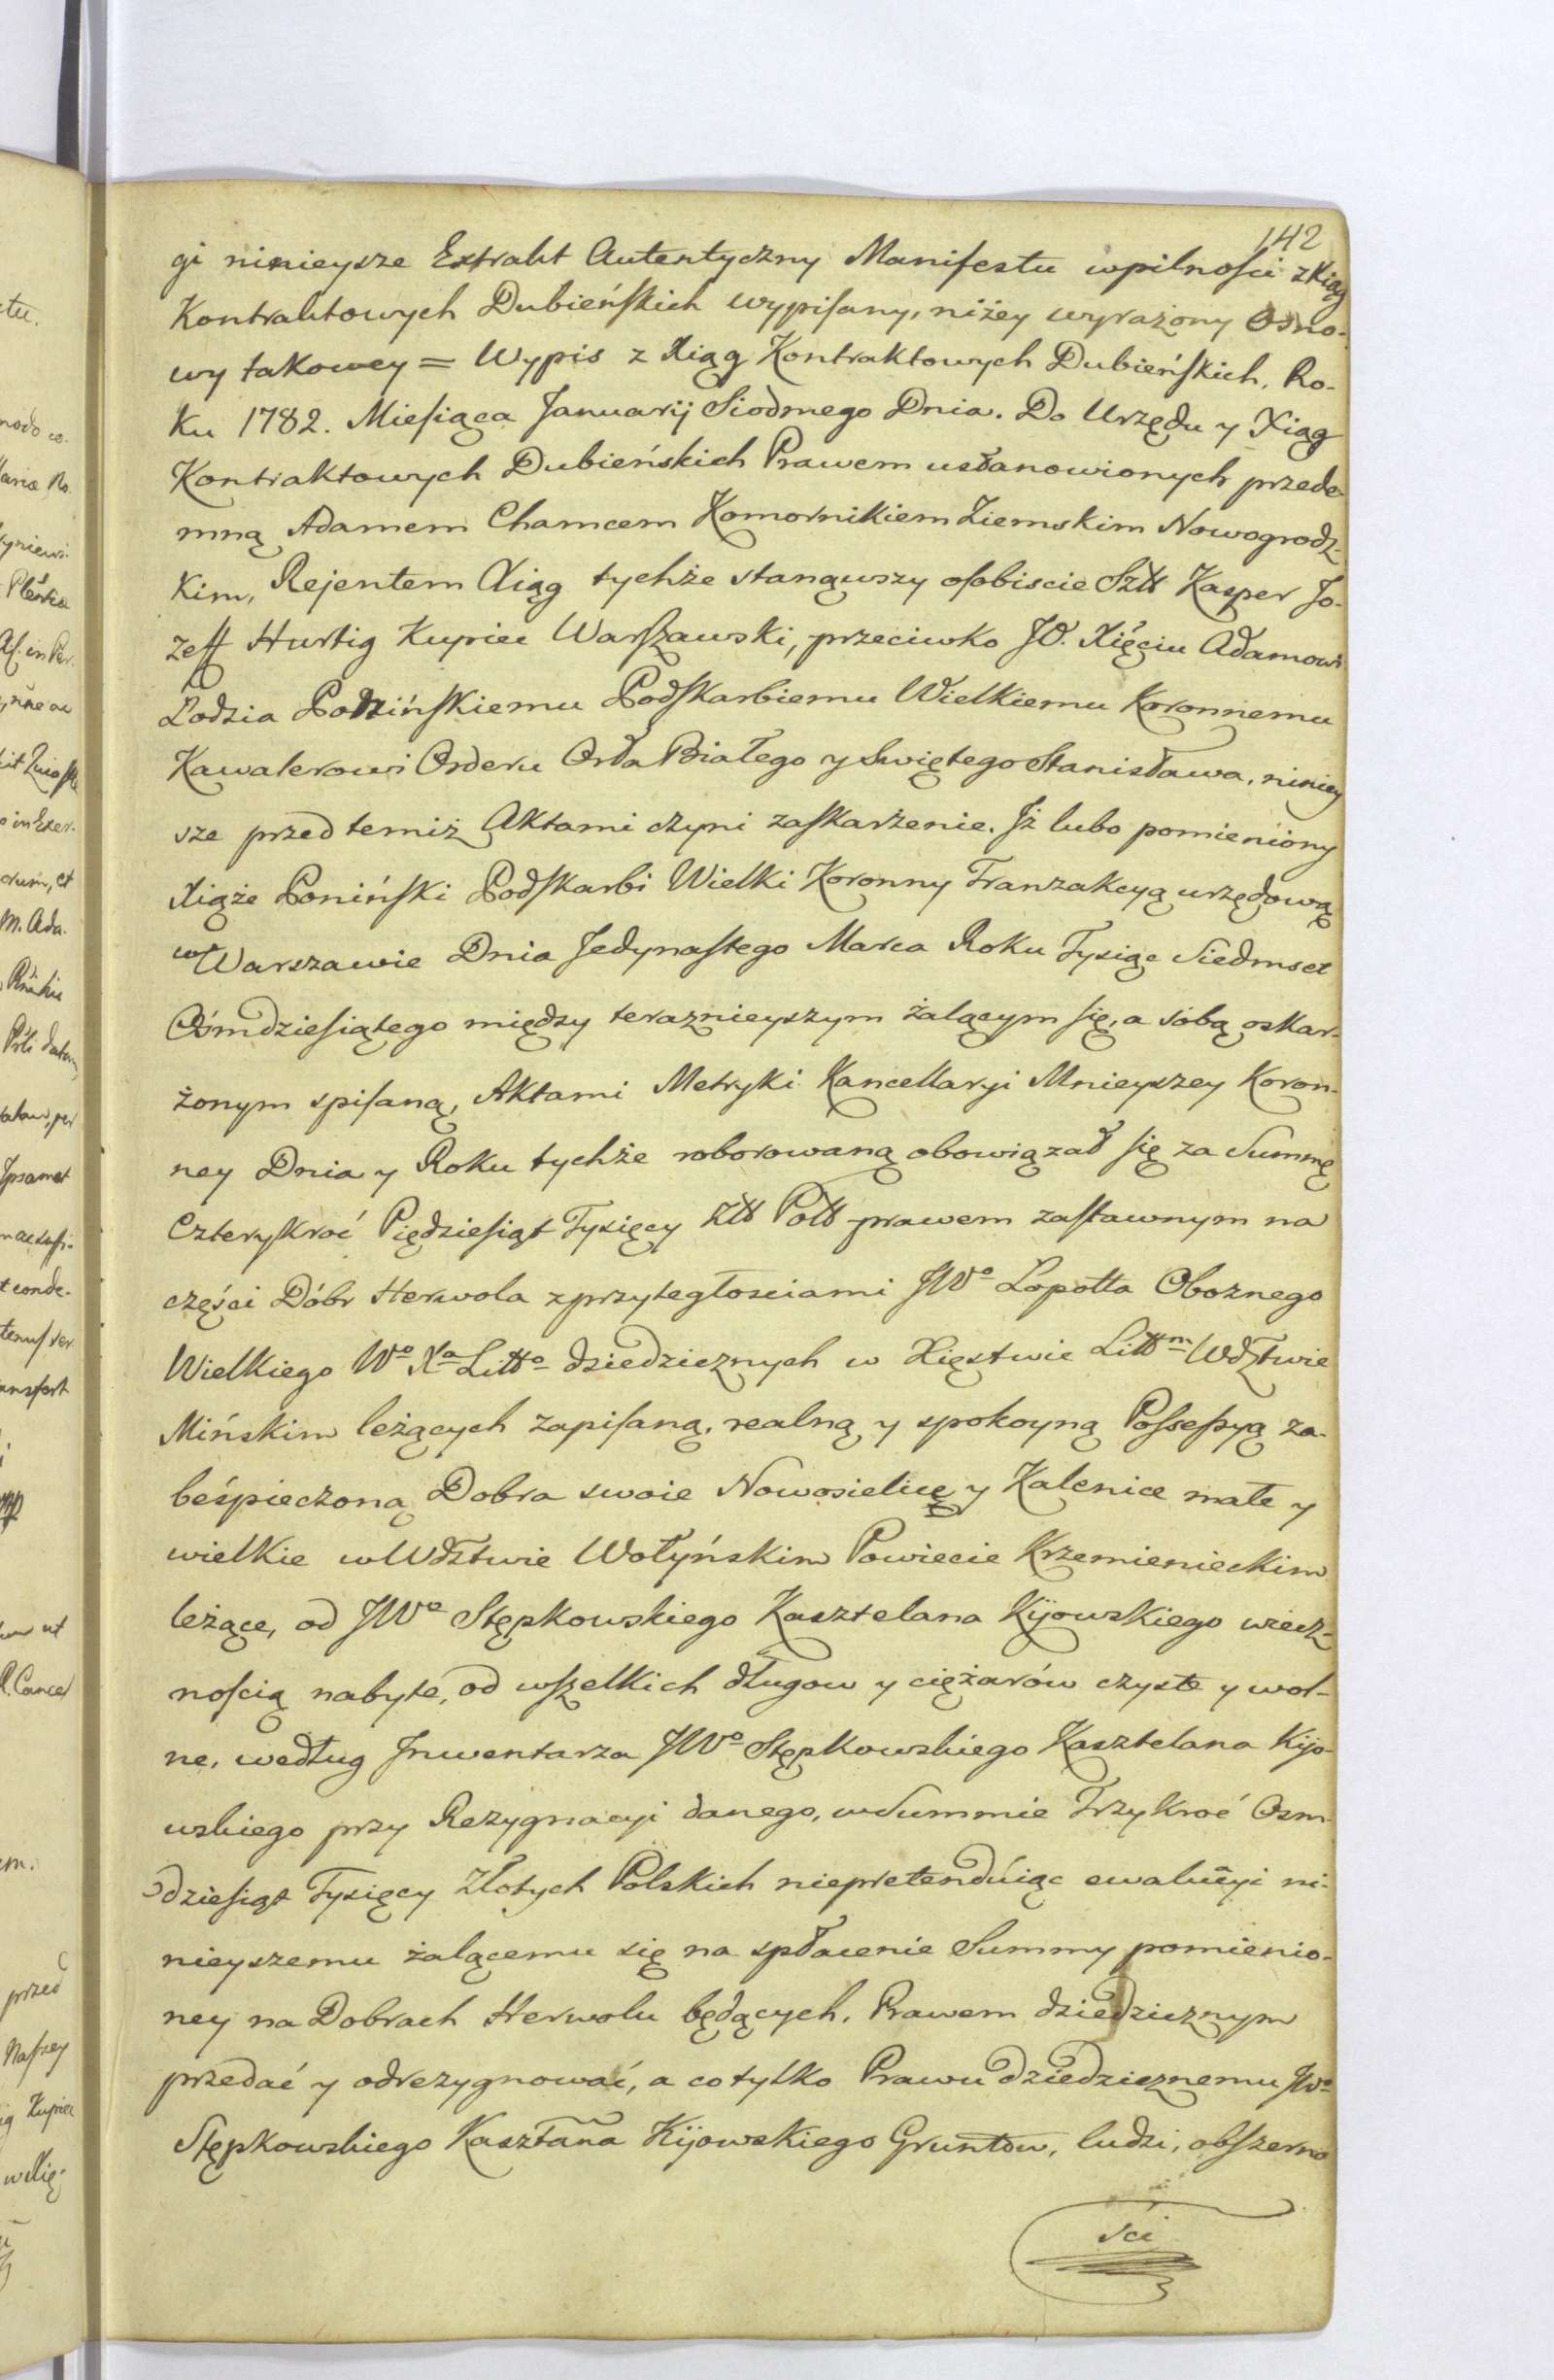 142
gi ninieysze Extrakt Autentyczny Manifestu wpilności zXiąg
Kontraktowych Dubieńskich wypisany, niżey wyrażony Osno-
wy takowey = Wypis z Xiąg Kontraktowych Dubieńskich. Ro-
ku 1782. Miesiąca Januarij Siodmego Dnia. Do Urzędu y Xiąg
Kontraktowych Dubieńskich Prawem ustanowionych przede-
mną Adamem Chamcem Komornikiem Ziemskim Nowogrodz-
kim, Rejentem Xiąg tychże stanąwszy osobiscie Szltt Kasper Jo-
zeff Hurtig Kupiec Warszawski, przeciwko JO. Xięciu Adamowi
Łodzia Ponińskiemu Podskarbiemu Wielkiemu Koronnemu
Kawalerowi Orderu Orła Białego y Swiętego Stanisława, niniey
sze przed temiż Aktami czyni zaskarżenie. Iż lubo pomieniony
Xiąże Poniński Podskarbi Wielki Koronny Tranzakcyą urzędową
w Warszawie Dnia Jedynastego Marca Roku Tysiąc Siedmset
Ośmdziesiątego między teraznieyszym żalącym się, a sobą oskar-
żonym spisaną, Aktami Metryki Kancellaryi Mnieyszey Koron-
ney Dnia y Roku tychże roborowaną obowiązał się za Summę
Czterykroć Pięćdziesiąt Tysięcy Złtt Poltt prawem zastawnym na
części Dóbr Herwola z przyległosciami JWo Łopotta Oboznego
Wielkiego Wo Xa Litto dziedzicznych w Xięstwie Littm Wdztwie
Mińskim leżących zapisaną, realną y spokoyną Possessyą za-
beśpieczoną Dobra swoie Nowosielicę y Kalenice małe y
wielkie w Wdztwie Wołyńskim Powiecie Krzemienieckim
leżące, od JWo Stępkowskiego Kasztelana Kijowskiego wiecz-
nością nabyte, od wszelkich długow y ciężarów czyste y wol-
ne, według Inwentarza JWo Stępkowskiego Kasztelana Kijo-
wskiego przy Rezygnacyi danego, w Summie Trzykroć Osm
dziesiąt Tysięcy Złotych Polskich niepretenduiąc ewalucyi ni-
nieyszemu żalącemu się na spłacenie Summy pomienio-
ney na Dobrach Herwolu będących, Prawem dziedzicznym
przedać y odrezygnować, a co tylko Prawu dziedzicznemu JWo
Stępkowskiego Kasztana Kijowskiego Gruntow, ludzi, obszerno
sci